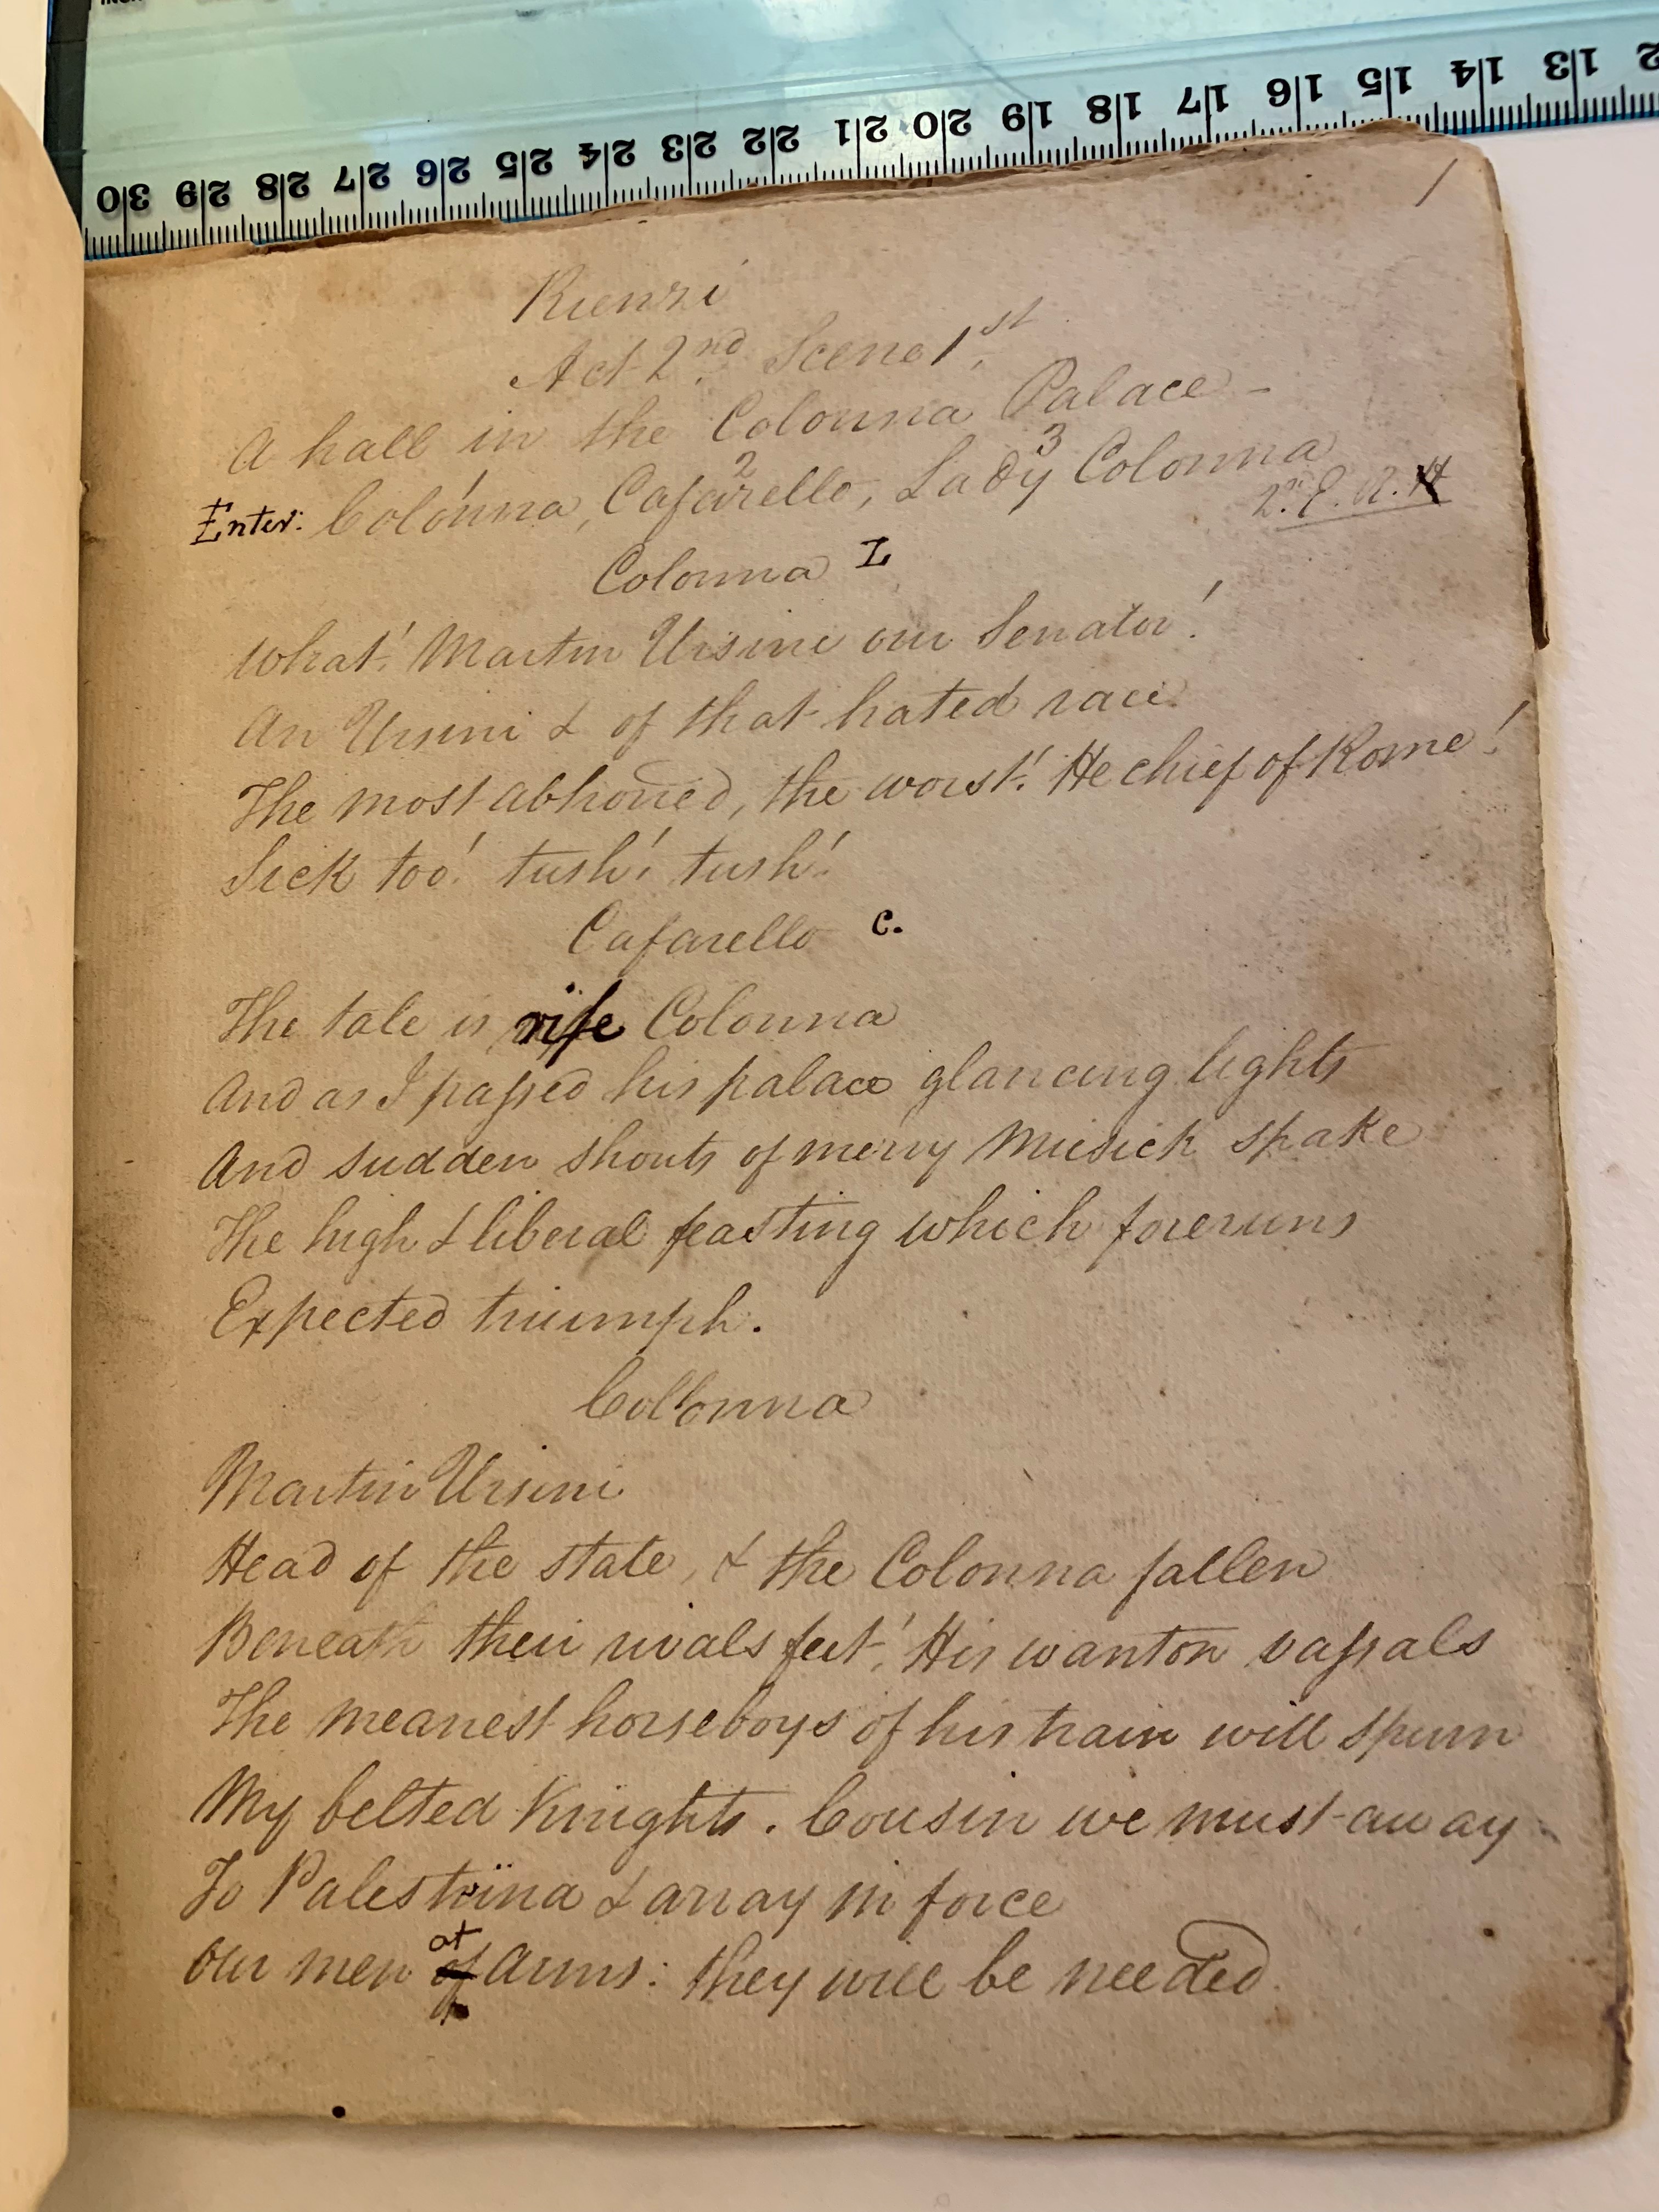 INCH
30 29 28 27 26 25 24 23 22 21 20 19 18 17 16 15 14 13 2
1
Rienzi
Act 2nd. Scene 1st.
A hall in the Colonna Palace -
1 2 3
Enter: Colonna, Cafarello, Lady Colonna
2n. E. R. H
Colonna L
What! Martin Ursini our Senator!
An Ursini & of that hated race
The most abhorred, the worst! He chief of Rome!
Sick too! tush! tush!
Cafarello C.
The tale is rife Colonna
And as I passed his palace glancing lights
And sudden shouts of merry Musick spake
The high & liberal feasting which foreruns
Expected triumph.
Collonna
Martin Ursini
Head of the state, & the Colonna fallen
Beneath their rivals feet! His wanton vassals
The meanest horseboys of his train will spurn
My belted Knights. Cousin we must away
To Palestrina & array in force
at
Our men of Arms: they will be needed